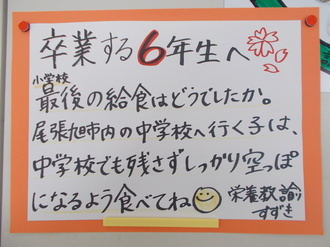 卒業する6年生へ
小学校
最後の給食はどうでしたか。
尾張旭市内の中学校へ行く子は、
中学校でも残さずしっかり空っぽ
になるよう食べてね
栄養教諭
すずき